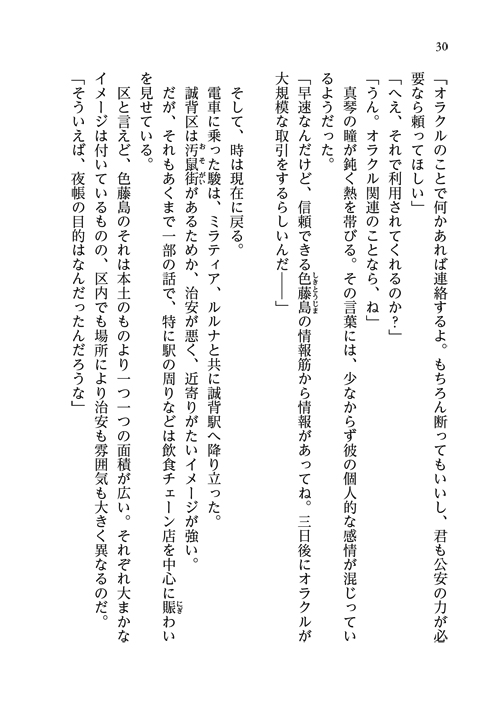 30
「オラクルのことで何かあれば連絡するよ。もちろん断ってもいいし、君も公安の力が必
要なら頼ってほしい」
「へえ、それで利用されてくれるのか?」
「うん。オラクル関連のことなら、ね」
真琴の瞳が鈍く熱を帯びる。その言葉には、少なからず彼の個人的な感情が混じってい
るようだった。
「早速なんだけど、信頼できる色藤島の情報筋から情報があってね。三日後にオラクルが
大規模な取引をするらしいんだ――」
そして、時は現在に戻る。
電車に乗った駿は、ミラティア、ルルナと共に誠背駅へ降り立った。
誠背区は汚鼠街があるためか、治安が悪く、近寄りがたいイメージが強い。
だが、それもあくまで一部の話で、特に駅の周りなどは飲食チェーン店を中心に賑わい
を見せている。
区と言えど、色藤島のそれは本土のものより一つ一つの面積が広い。それぞれ大まかな
イメージは付いているものの、区内でも場所により治安も雰囲気も大きく異なるのだ。
「そういえば、夜帳の目的はなんだったんだろうな」